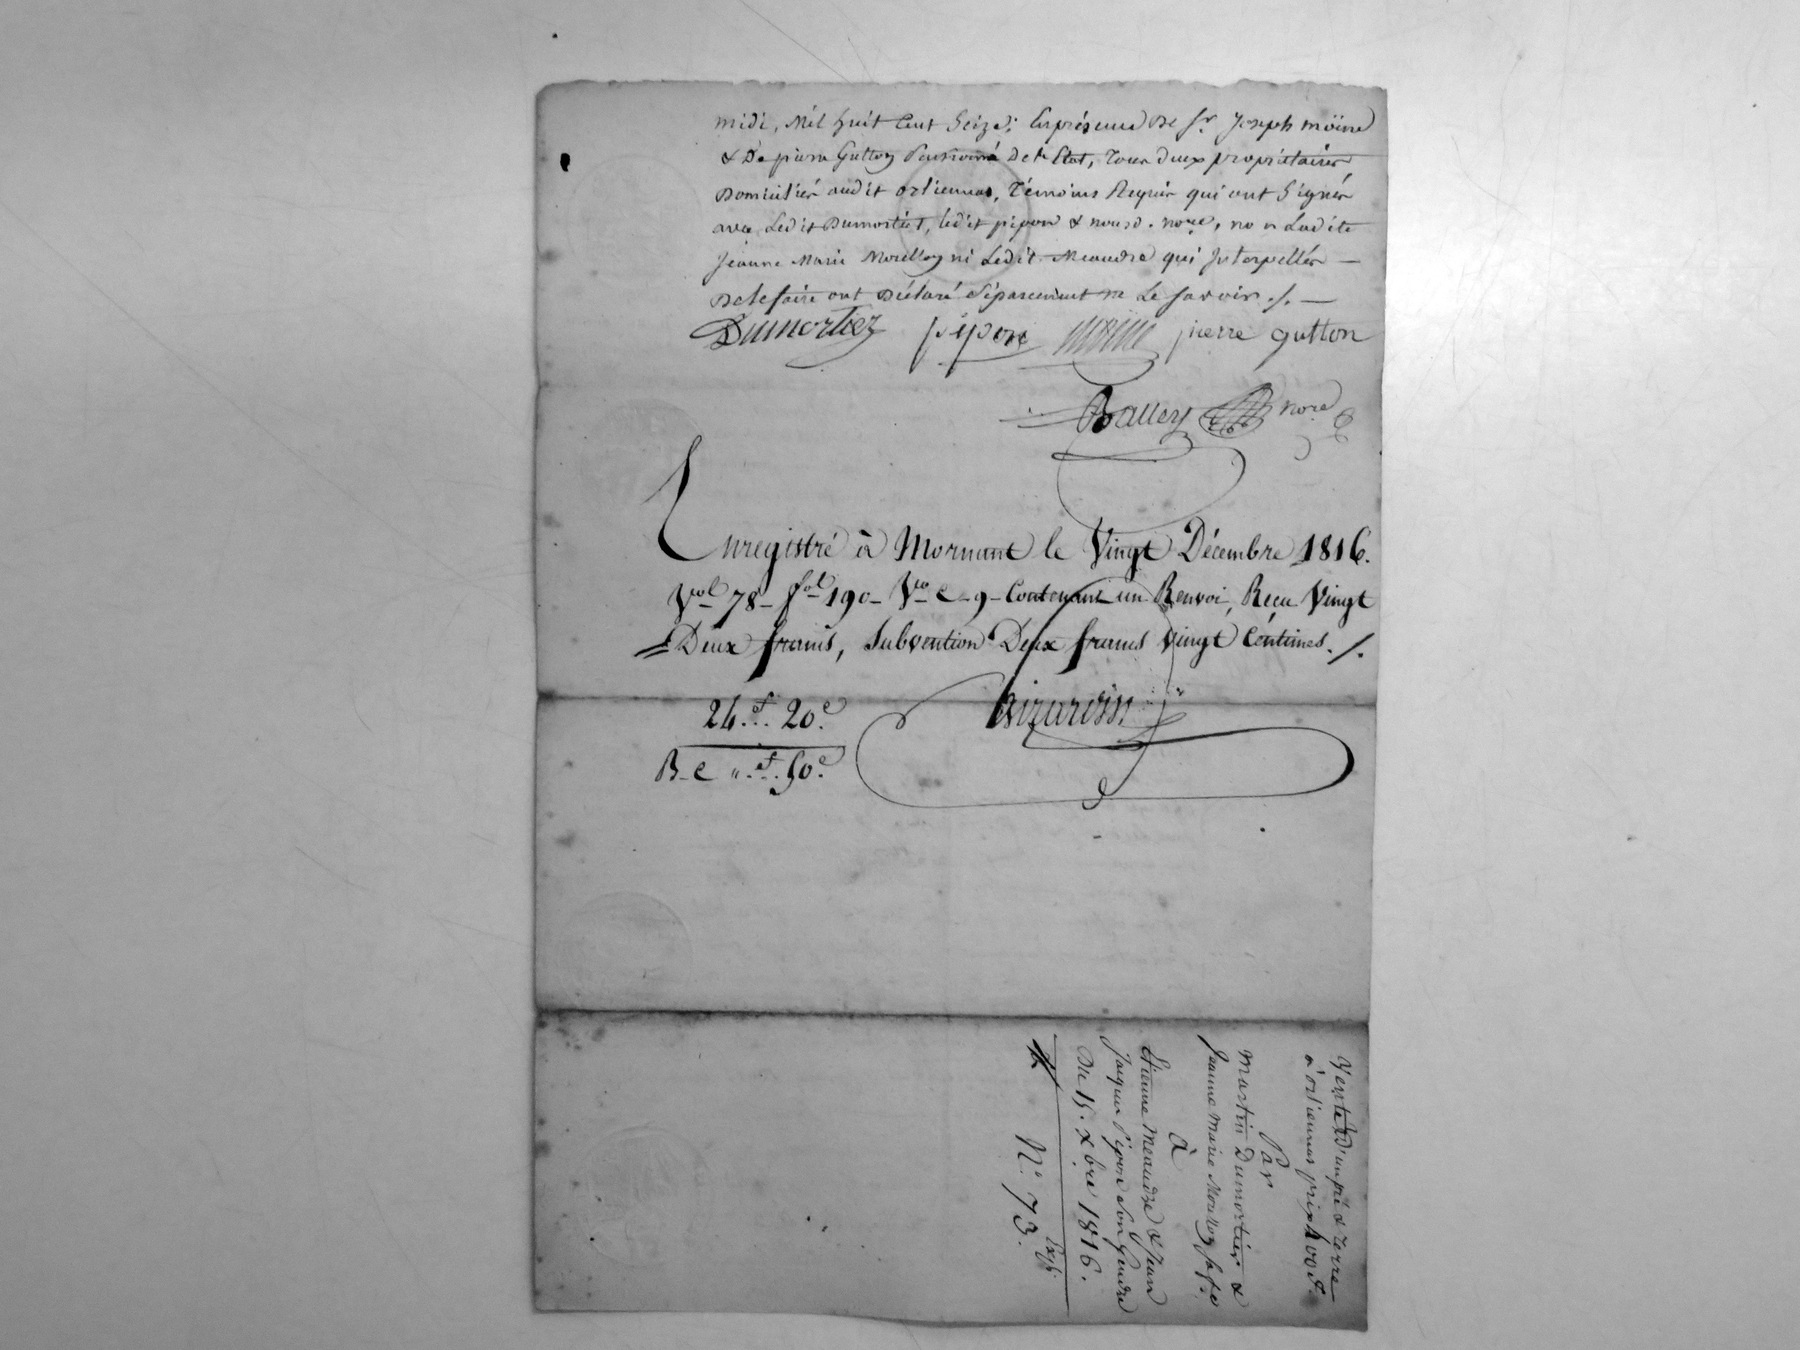 midi, Mil huit Cent Seize; En présence de Sr. Joseph moine
& De pierre Gutton Pensionné de l'Etat, Tous deux propriétaires
Domiciliés audit orliennas, Témoins Requis qui ont Signés
avec Ledit Dumortier, ledit pipon & nousd. nore, non Ladite
Jeanne Marie Mouilloy ni Ledit Meaudre qui Interpellés —
De le faire ont Déclaré Séparement ne Le Savoir ./. —
Dumortier pipon moine pierre gutton
Balley nore
Enregistré à Mornant le Vingt Décembre 1816.
Vol 78 - fol 190 - Vo C - 9 - Contenant un Renvoi, Reçu Vingt
Deux francs, Subvention Deux francs vingt Centimes ./.
24.f. 20.c
Girardin
R - e ".f. 50.c
Vente d'un pré & Terre
à orliennas prix 400 f.
Par
Martin Dumortier &
Jeanne Marie Mouilloy Sa fe.
à
Etienne Meaudre & Jean
Jacques Pipon Son Gendre
Du 15. xbre 1816.
Expn.
N.° 73.